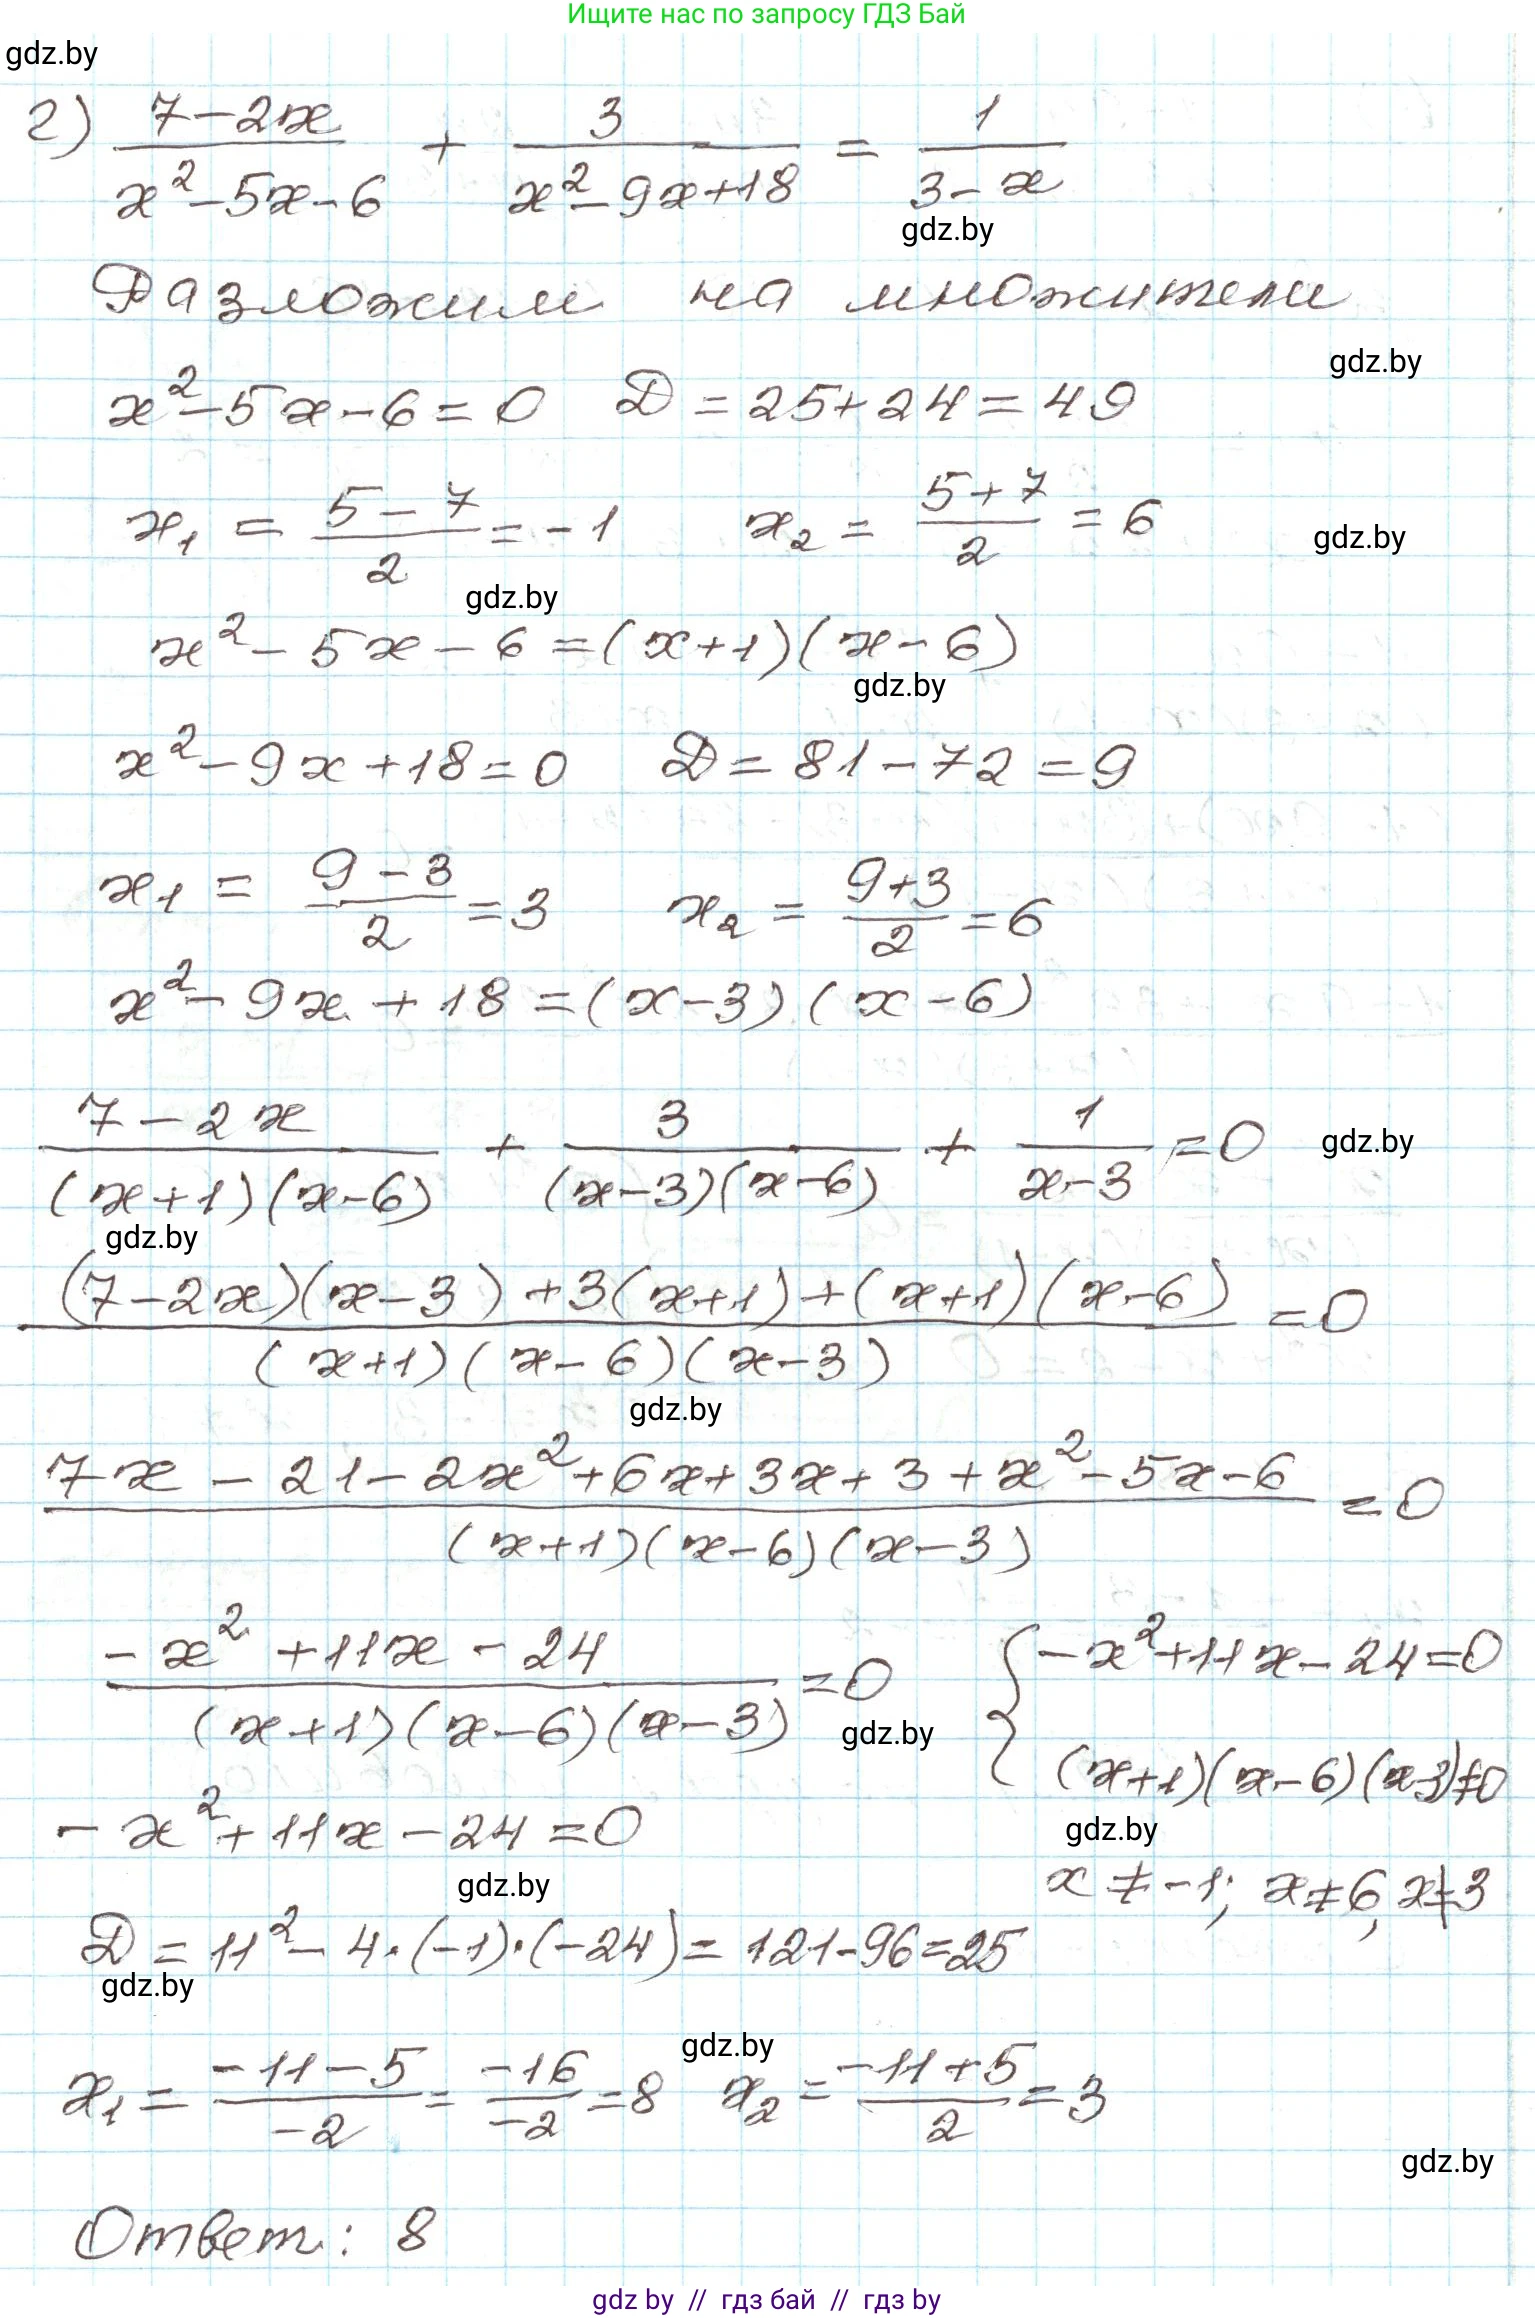 Ищите нас по запросу ГДЗ Бай
gdz.by
г) (7-2x)/(x²-5x-6) + 3/(x²-9x+18) = 1/(3-x)
gdz.by
Разложим на множители
gdz.by
x²-5x-6=0 D=25+24=49
x₁ = (5-7)/2 = -1 x₂ = (5+7)/2 = 6
gdz.by
gdz.by
x²-5x-6=(x+1)(x-6)
gdz.by
x²-9x+18=0 D=81-72=9
x₁ = (9-3)/2 = 3 x₂ = (9+3)/2 = 6
x²-9x+18=(x-3)(x-6)
(7-2x)/((x+1)(x-6)) + 3/((x-3)(x-6)) + 1/(x-3) = 0
gdz.by
gdz.by
((7-2x)(x-3)+3(x+1)+(x+1)(x-6))/((x+1)(x-6)(x-3)) = 0
gdz.by
(7x-21-2x²+6x+3x+3+x²-5x-6)/((x+1)(x-6)(x-3)) = 0
(-x²+11x-24)/((x+1)(x-6)(x-3)) = 0 { -x²+11x-24=0
gdz.by
(x+1)(x-6)(x-3)≠0
-x²+11x-24=0
gdz.by
gdz.by
x≠-1; x≠6, x≠3
D=11²-4·(-1)·(-24)=121-96=25
gdz.by
gdz.by
x₁ = (-11-5)/(-2) = (-16)/(-2) = 8 x₂ = (-11+5)/2 = 3
gdz.by
Ответ: 8
gdz by // гдз бай // гдз by